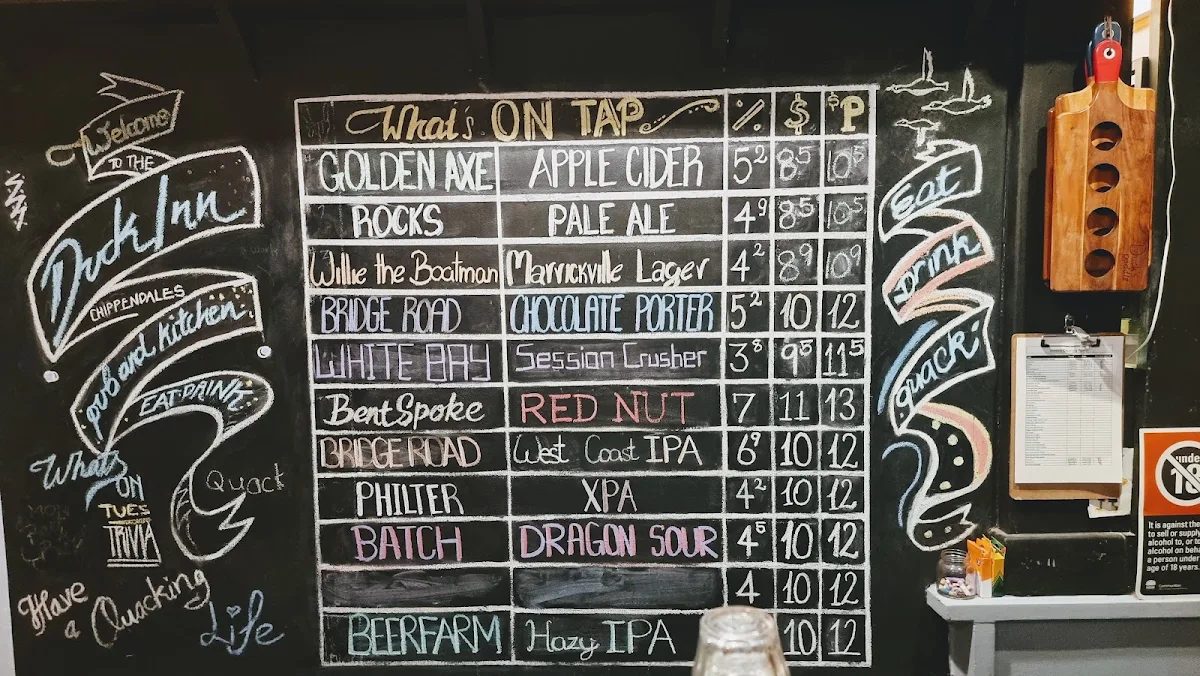 Welcome
TO THE
Duck Inn
CHIPPENDALES
pub and kitchen
EAT·DRINK
What's
ON
TUES
TRIVIA
Quack
Have
a Quacking
Life
What's ON TAP % $ $P
GOLDEN AXE APPLE CIDER 5² 8⁵ 10⁵
ROCKS PALE ALE 4⁹ 8⁵ 10⁵
Willie the Boatman Marrickville Lager 4² 8⁹ 10⁹
BRIDGE ROAD CHOCOLATE PORTER 5² 10 12
WHITE BAY Session Crusher 3⁸ 9⁵ 11⁵
BentSpoke RED NUT 7 11 13
BRIDGE ROAD West Coast IPA 6⁹ 10 12
PHILTER XPA 4² 10 12
BATCH DRAGON SOUR 4⁵ 10 12
4 10 12
BEERFARM Hazy IPA 10 12
Eat
Drink
quack
unde
18
It is against the
to sell or supply
alcohol to, or to
alcohol on beha
a person under
age of 18 years.